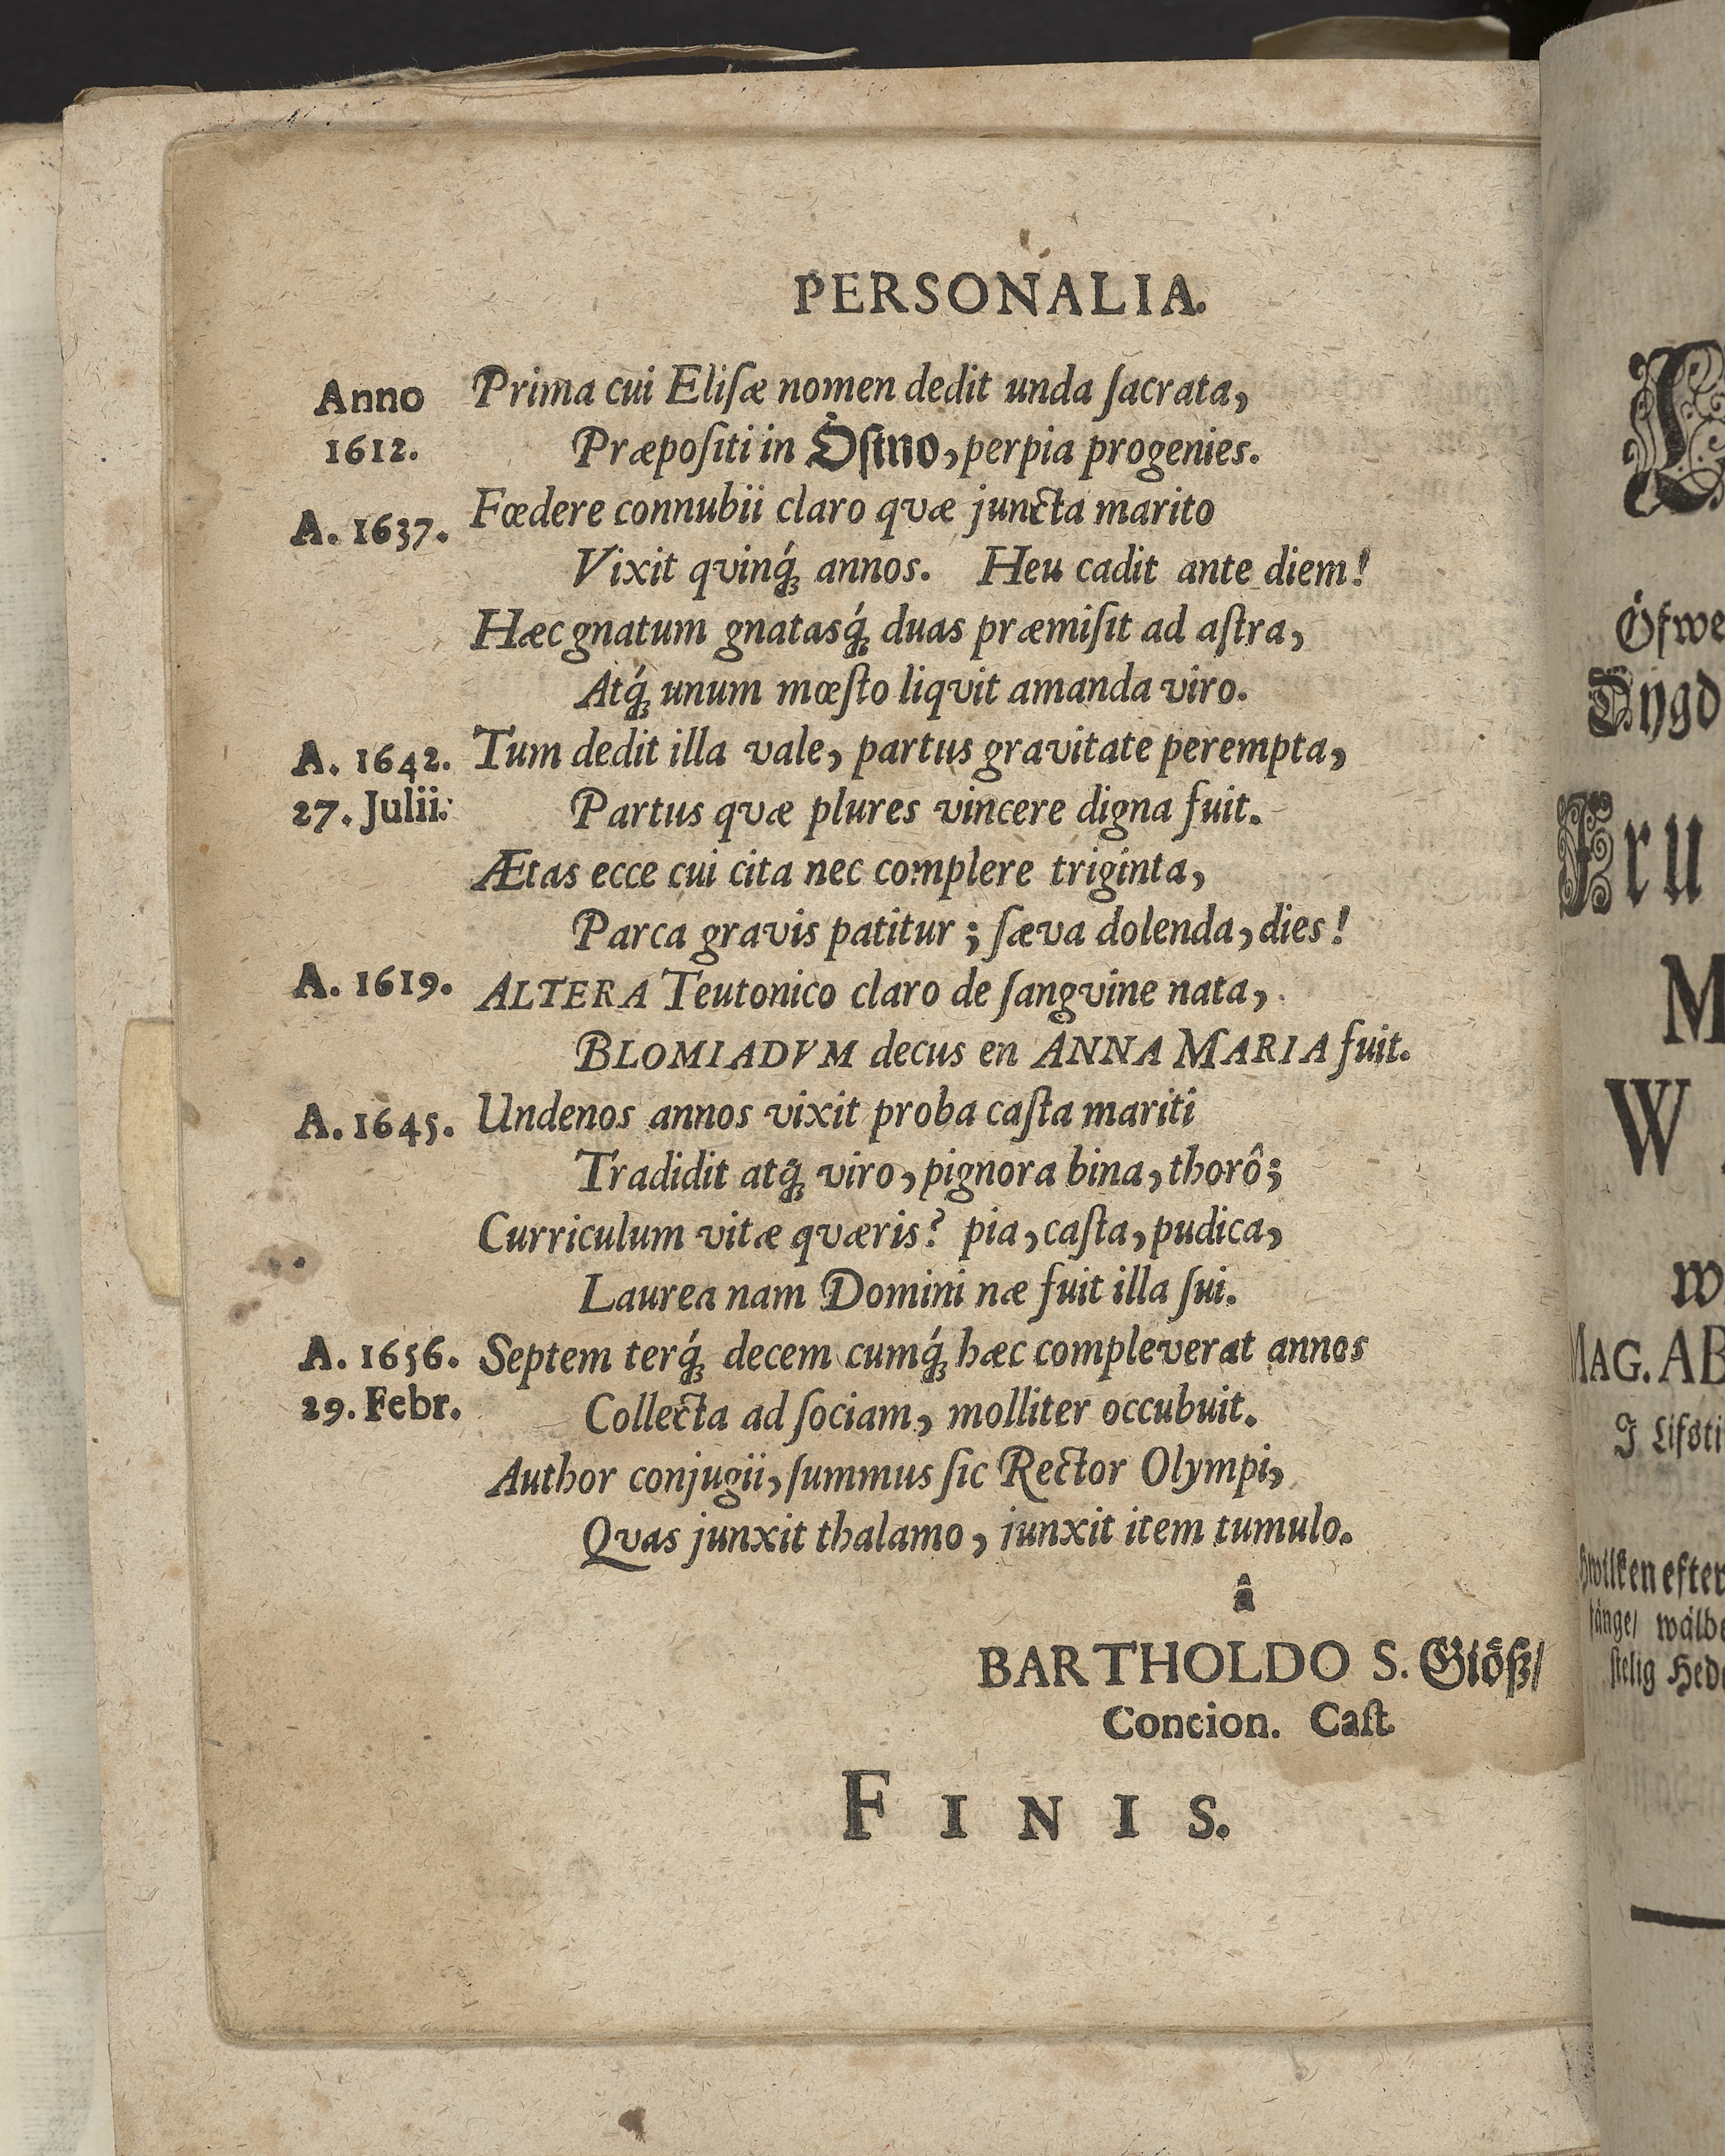 PERSONALIA.
Anno Prima cui Eliſæ nomen dedit unda ſacrata,
1612. Præpoſiti in Öſtno, perpia progenies.
A. 1637. Fœdere connubii claro qvæ juncta marito
Vixit qvinq́ꝫ annos. Heu cadit ante diem!
Hæc gnatum gnatasq́ꝫ duas præmiſit ad aſtra,
Atq́ꝫ unum mœſto liqvit amanda viro.
A. 1642. Tum dedit illa vale, partus gravitate perempta,
27. Julii. Partus qvæ plures vincere digna fuit.
Ætas ecce cui cita nec complere triginta,
Parca gravis patitur; ſæva dolenda, dies!
A. 1619. ALTERA Teutonico claro de ſangvine nata,
BLOMIADVM decus en ANNA MARIA fuit.
A. 1645. Undenos annos vixit proba caſta mariti
Tradidit atqꝫ viro, pignora bina, thorô;
Curriculum vitæ qværis? pia, caſta, pudica,
Laurea nam Domini næ fuit illa ſui.
A. 1656. Septem terq́ꝫ decem cumq́ꝫ hæc compleverat annos
29. Febr. Collecta ad ſociam, molliter occubuit.
Author conjugii, ſummus ſic Rector Olympi,
Qvas junxit thalamo, junxit item tumulo.
â
BARTHOLDO S. Giöß/
Concion. Caſt.
FINIS.
Öfwe
Dygd
Fru
M
W
w
MAG. AB
J Lifsti
Hwilken efter
ſtelig Hed